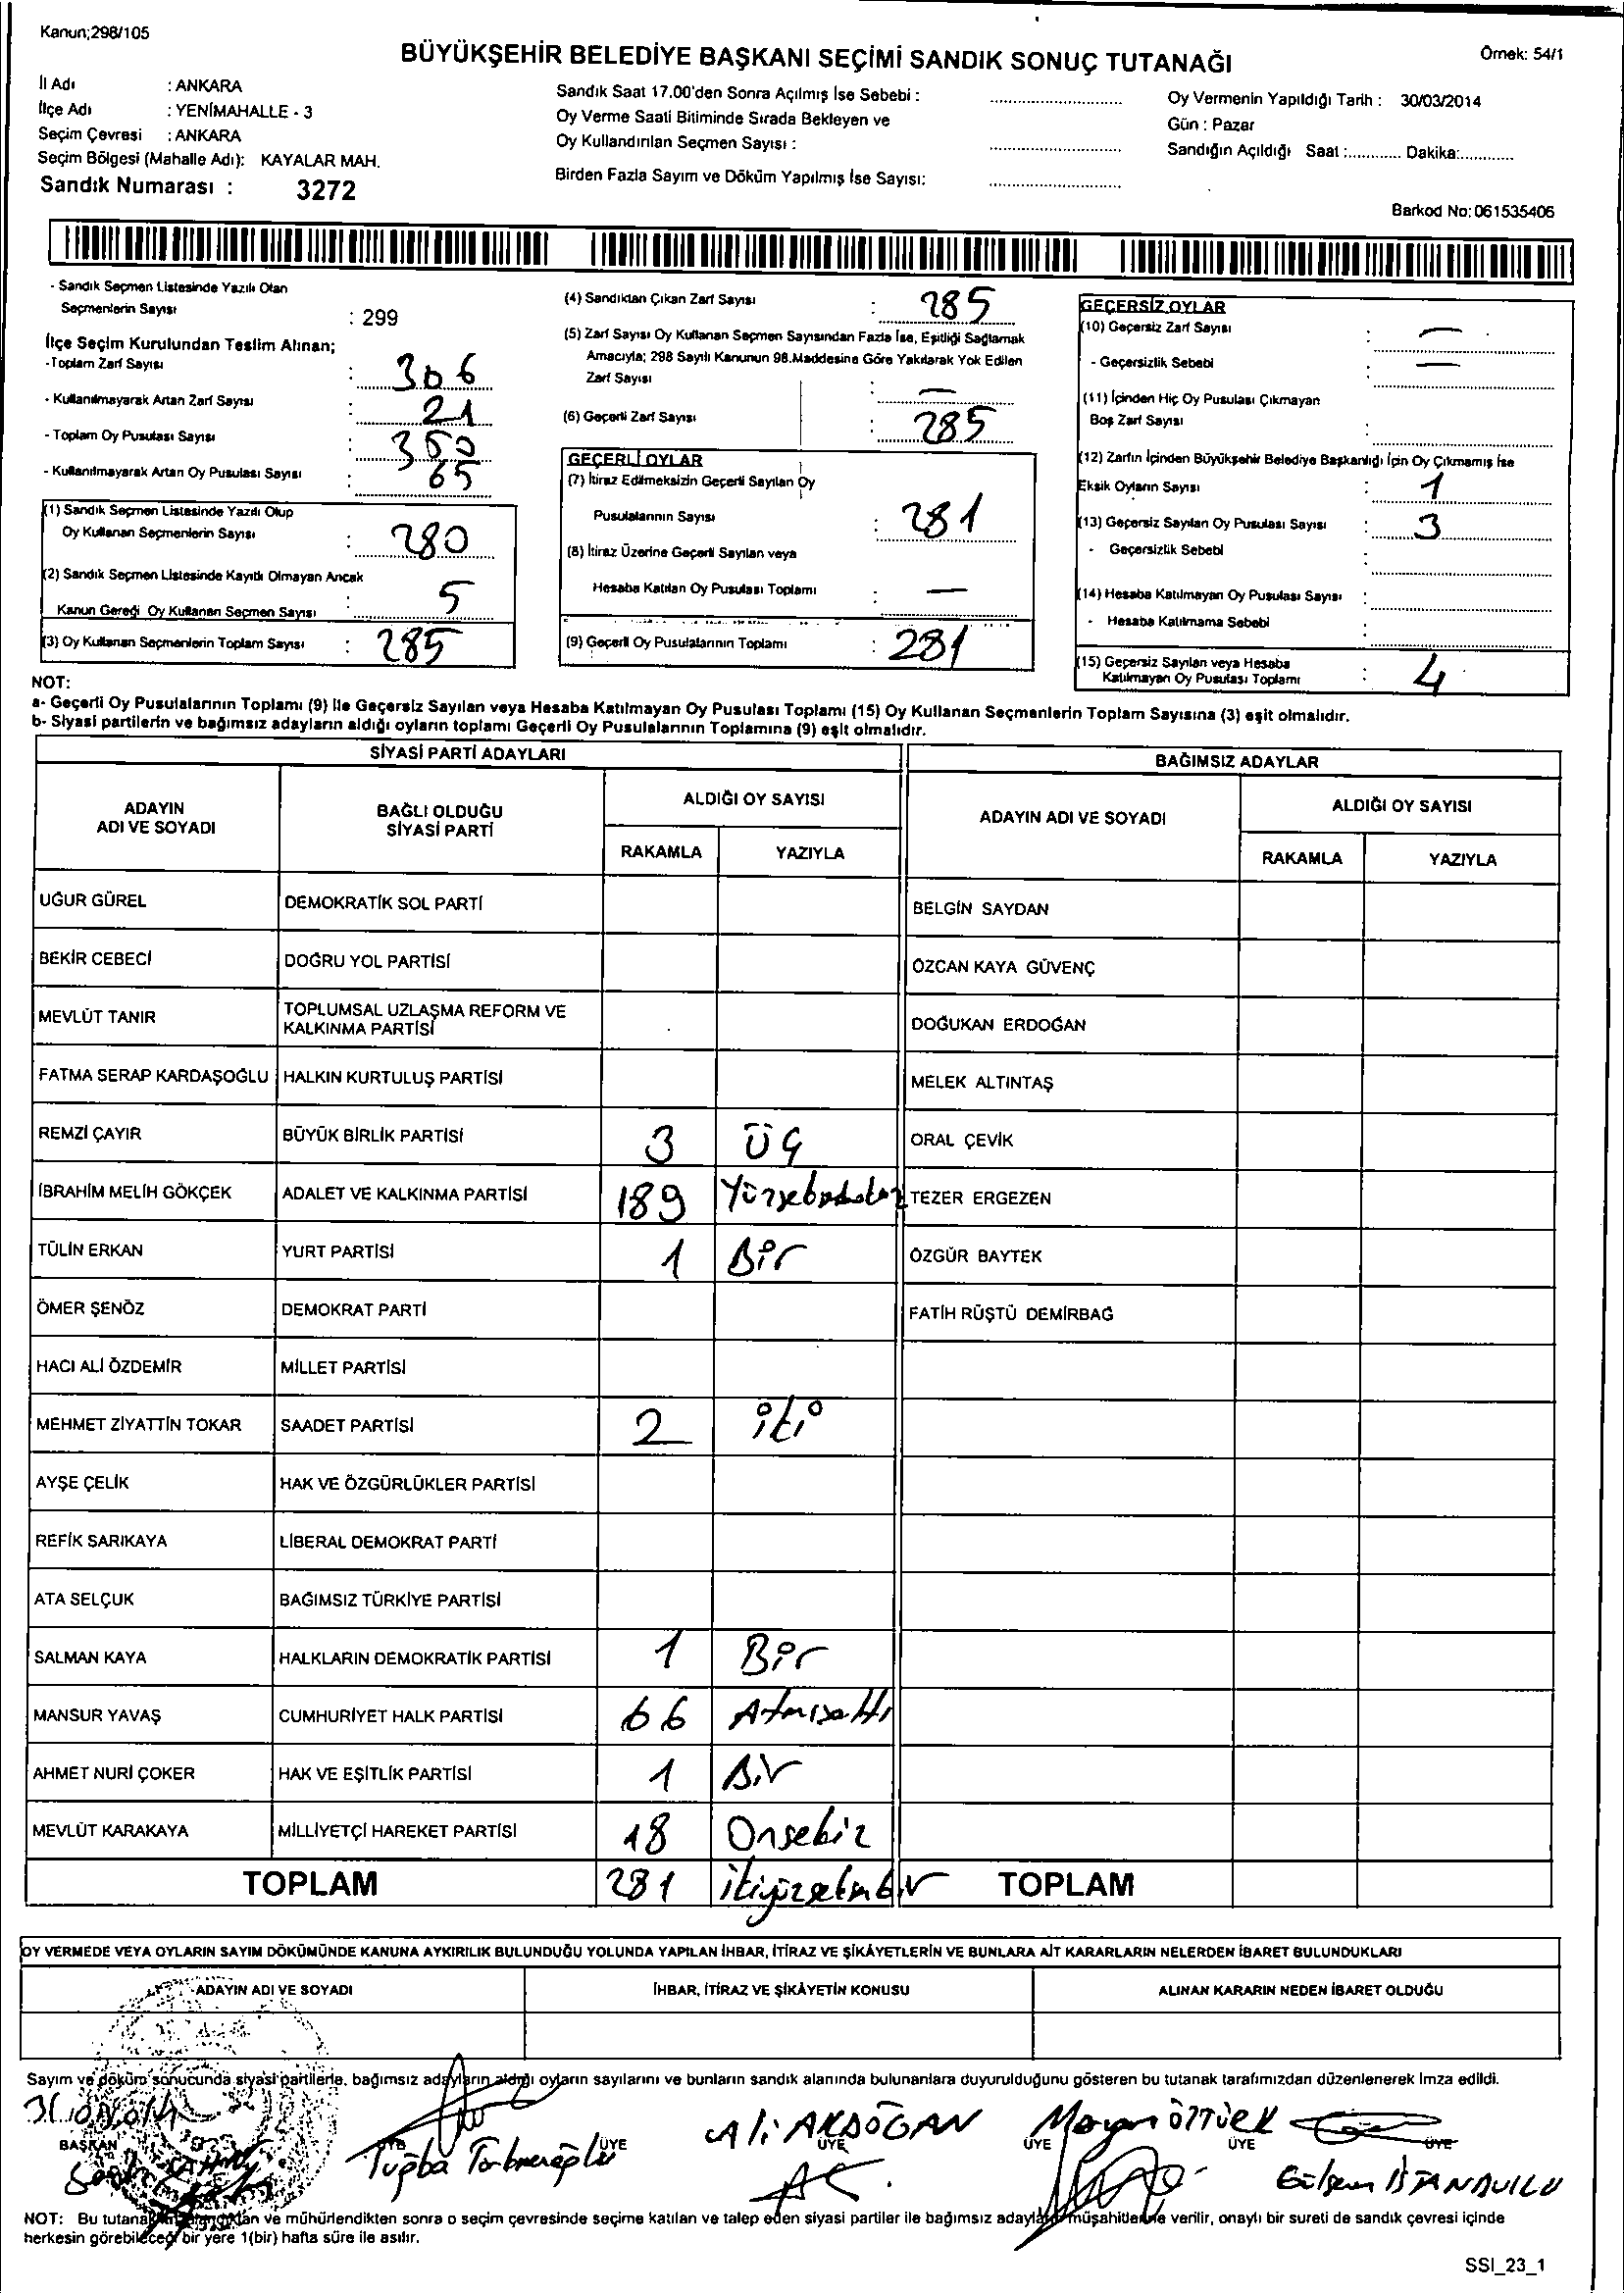 Kanun;298/105
BÜYÜKŞEHİR BELEDİYE BAŞKANI SEÇİMİ SANDIK SONUÇ TUTANAĞI
Örnek: 54/1
İl Adı : ANKARA
İlçe Adı : YENİMAHALLE - 3
Seçim Çevresi : ANKARA
Seçim Bölgesi (Mahalle Adı): KAYALAR MAH.
Sandık Numarası : 3272
Sandık Saat 17.00'den Sonra Açılmış İse Sebebi :
Oy Verme Saati Bitiminde Sırada Bekleyen ve
Oy Kullandırılan Seçmen Sayısı :
Birden Fazla Sayım ve Döküm Yapılmış İse Sayısı:
Oy Vermenin Yapıldığı Tarih : 30/03/2014
Gün : Pazar
Sandığın Açıldığı Saat :............ Dakika:............
Barkod No: 061535406
- Sandık Seçmen Listesinde Yazılı Olan
Seçmenlerin Sayısı : 299
İlçe Seçim Kurulundan Teslim Alınan;
-Toplam Zarf Sayısı : 306
- Kullanılmayarak Artan Zarf Sayısı : 21
- Toplam Oy Pusulası Sayısı : 350
- Kullanılmayarak Artan Oy Pusulası Sayısı : 65
(1) Sandık Seçmen Listesinde Yazılı Olup
Oy Kullanan Seçmenlerin Sayısı : 280
(2) Sandık Seçmen Listesinde Kayıtlı Olmayan Ancak
Kanun Gereği Oy Kullanan Seçmen Sayısı : 5
(3) Oy Kullanan Seçmenlerin Toplam Sayısı : 285
(4) Sandıktan Çıkan Zarf Sayısı : 285
(5) Zarf Sayısı Oy Kullanan Seçmen Sayısından Fazla İse, Eşitliği Sağlamak
Amacıyla; 298 Sayılı Kanunun 98.Maddesine Göre Yakılarak Yok Edilen
Zarf Sayısı : —
(6) Geçerli Zarf Sayısı : 285
GEÇERLİ OYLAR
(7) İtiraz Edilmeksizin Geçerli Sayılan Oy
Pusulalarının Sayısı : 281
(8) İtiraz Üzerine Geçerli Sayılan veya
Hesaba Katılan Oy Pusulası Toplamı : —
(9) Geçerli Oy Pusulalarının Toplamı : 281
GEÇERSİZ OYLAR
(10) Geçersiz Zarf Sayısı : —
- Geçersizlik Sebebi : —
(11) İçinden Hiç Oy Pusulası Çıkmayan
Boş Zarf Sayısı :
(12) Zarfın İçinden Büyükşehir Belediye Başkanlığı İçin Oy Çıkmamış İse
Eksik Oyların Sayısı : 1
(13) Geçersiz Sayılan Oy Pusulası Sayısı : 3
- Geçersizlik Sebebi :
(14) Hesaba Katılmayan Oy Pusulası Sayısı :
- Hesaba Katılmama Sebebi :
(15) Geçersiz Sayılan veya Hesaba
Katılmayan Oy Pusulası Toplamı : 4
NOT:
a- Geçerli Oy Pusulalarının Toplamı (9) ile Geçersiz Sayılan veya Hesaba Katılmayan Oy Pusulası Toplamı (15) Oy Kullanan Seçmenlerin Toplam Sayısına (3) eşit olmalıdır.
b- Siyasi partilerin ve bağımsız adayların aldığı oyların toplamı Geçerli Oy Pusulalarının Toplamına (9) eşit olmalıdır.
SİYASİ PARTİ ADAYLARI BAĞIMSIZ ADAYLAR
ADAYIN ADI VE SOYADI BAĞLI OLDUĞU SİYASİ PARTİ ALDIĞI OY SAYISI ADAYIN ADI VE SOYADI ALDIĞI OY SAYISI
RAKAMLA YAZIYLA RAKAMLA YAZIYLA
UĞUR GÜREL DEMOKRATİK SOL PARTİ BELGİN SAYDAN
BEKİR CEBECİ DOĞRU YOL PARTİSİ ÖZCAN KAYA GÜVENÇ
MEVLÜT TANIR TOPLUMSAL UZLAŞMA REFORM VE KALKINMA PARTİSİ DOĞUKAN ERDOĞAN
FATMA SERAP KARDAŞOĞLU HALKIN KURTULUŞ PARTİSİ MELEK ALTINTAŞ
REMZİ ÇAYIR BÜYÜK BİRLİK PARTİSİ 3 ÜÇ ORAL ÇEVİK
İBRAHİM MELİH GÖKÇEK ADALET VE KALKINMA PARTİSİ 189 TEZER ERGEZEN
TÜLİN ERKAN YURT PARTİSİ 1 Bir ÖZGÜR BAYTEK
ÖMER ŞENÖZ DEMOKRAT PARTİ FATİH RÜŞTÜ DEMİRBAĞ
HACI ALİ ÖZDEMİR MİLLET PARTİSİ
MEHMET ZİYATTİN TOKAR SAADET PARTİSİ 2 iki
AYŞE ÇELİK HAK VE ÖZGÜRLÜKLER PARTİSİ
REFİK SARIKAYA LİBERAL DEMOKRAT PARTİ
ATA SELÇUK BAĞIMSIZ TÜRKİYE PARTİSİ
SALMAN KAYA HALKLARIN DEMOKRATİK PARTİSİ 1 Bir
MANSUR YAVAŞ CUMHURİYET HALK PARTİSİ 66 Atmışaltı
AHMET NURİ ÇOKER HAK VE EŞİTLİK PARTİSİ 1 Bir
MEVLÜT KARAKAYA MİLLİYETÇİ HAREKET PARTİSİ 18 Onsekiz
TOPLAM 281 ikiyüzseksenbir TOPLAM
OY VERMEDE VEYA OYLARIN SAYIM DÖKÜMÜNDE KANUNA AYKIRILIK BULUNDUĞU YOLUNDA YAPILAN İHBAR, İTİRAZ VE ŞİKÂYETLERİN VE BUNLARA AİT KARARLARIN NELERDEN İBARET BULUNDUKLARI
ADAYIN ADI VE SOYADI İHBAR, İTİRAZ VE ŞİKÂYETİN KONUSU ALINAN KARARIN NEDEN İBARET OLDUĞU
Sayım ve döküm sonucunda siyasi partilerle, bağımsız adayların aldığı oyların sayılarını ve bunların sandık alanında bulunanlara duyurulduğunu gösteren bu tutanak tarafımızdan düzenlenerek imza edildi.
BAŞKAN ÜYE ÜYE ÜYE ÜYE ÜYE
Tuğba Ali AKDOĞAN ÖZTÜRK İSTANBULLU
NOT: Bu tutanak ve mühürlendikten sonra o seçim çevresinde seçime katılan ve talep eden siyasi partiler ile bağımsız adayların müşahitlerine verilir, onaylı bir sureti de sandık çevresi içinde
herkesin görebileceği bir yere 1(bir) hafta süre ile asılır.
SSI_23_1